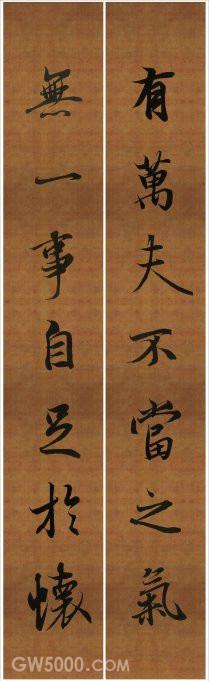 有萬夫不當之氣
無一事自足於懷
GW5000.com